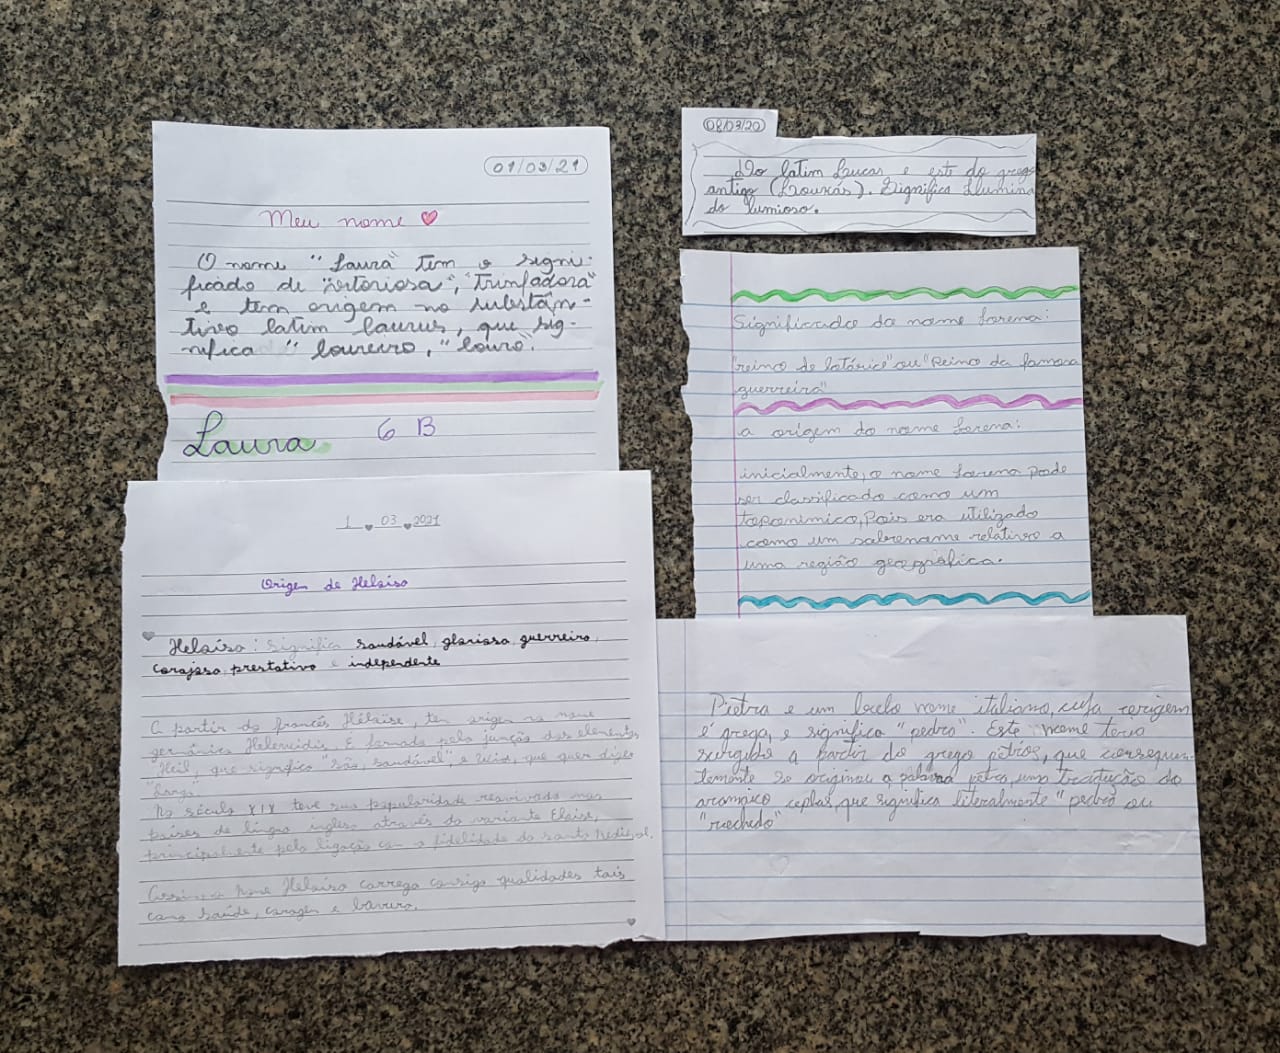 01/03/21
Meu nome
O nome "Laura" tem o signi-
ficado de "vitoriosa", "trinfadora"
e tem origem no substân-
tivo latim laurus, que sig-
nifica "loureiro", "louro".
Laura 6 B
08/03/20
Do latim Lucas e este do grego
antigo (Loukás). Significa Ilumina
do lumioso.
Significado do nome Lorena:
"reino de lotárice" ou "Reino da famosa
guerreira"
a origem do nome Lorena:
inicialmente, o nome Lorena pode
ser classificado como um
toponímico, pois era utilizado
como um sobrenome relativo a
uma região geográfica.
1 03 2021
Origem de Heloísa
Heloísa: significa saudável, gloriosa, guerreira,
corajosa, prestativa e independente
A partir do francês Héloïse, tem origem no nome
germânico Helewidis. É formado pela junção dos elementos
"Heil", que significa "são, saudável", e que quer dizer
"longo".
No século XIX teve sua popularidade reavivada nos
países de língua inglesa através da variante Eloise,
principalmente pela ligação com a fidelidade da santa
Assim, o nome Heloísa carrega consigo qualidades tais
como saúde, coragem e bravura.
Pietra e um nome italiano, cuja origem
é grega, e significa "pedra". Este nome teria
surgido a partir do grego pétros, que consequen-
temente se originou a palavra petra, uma tradução do
aramaico cephas, que significa literalmente "pedra ou
"rochedo"